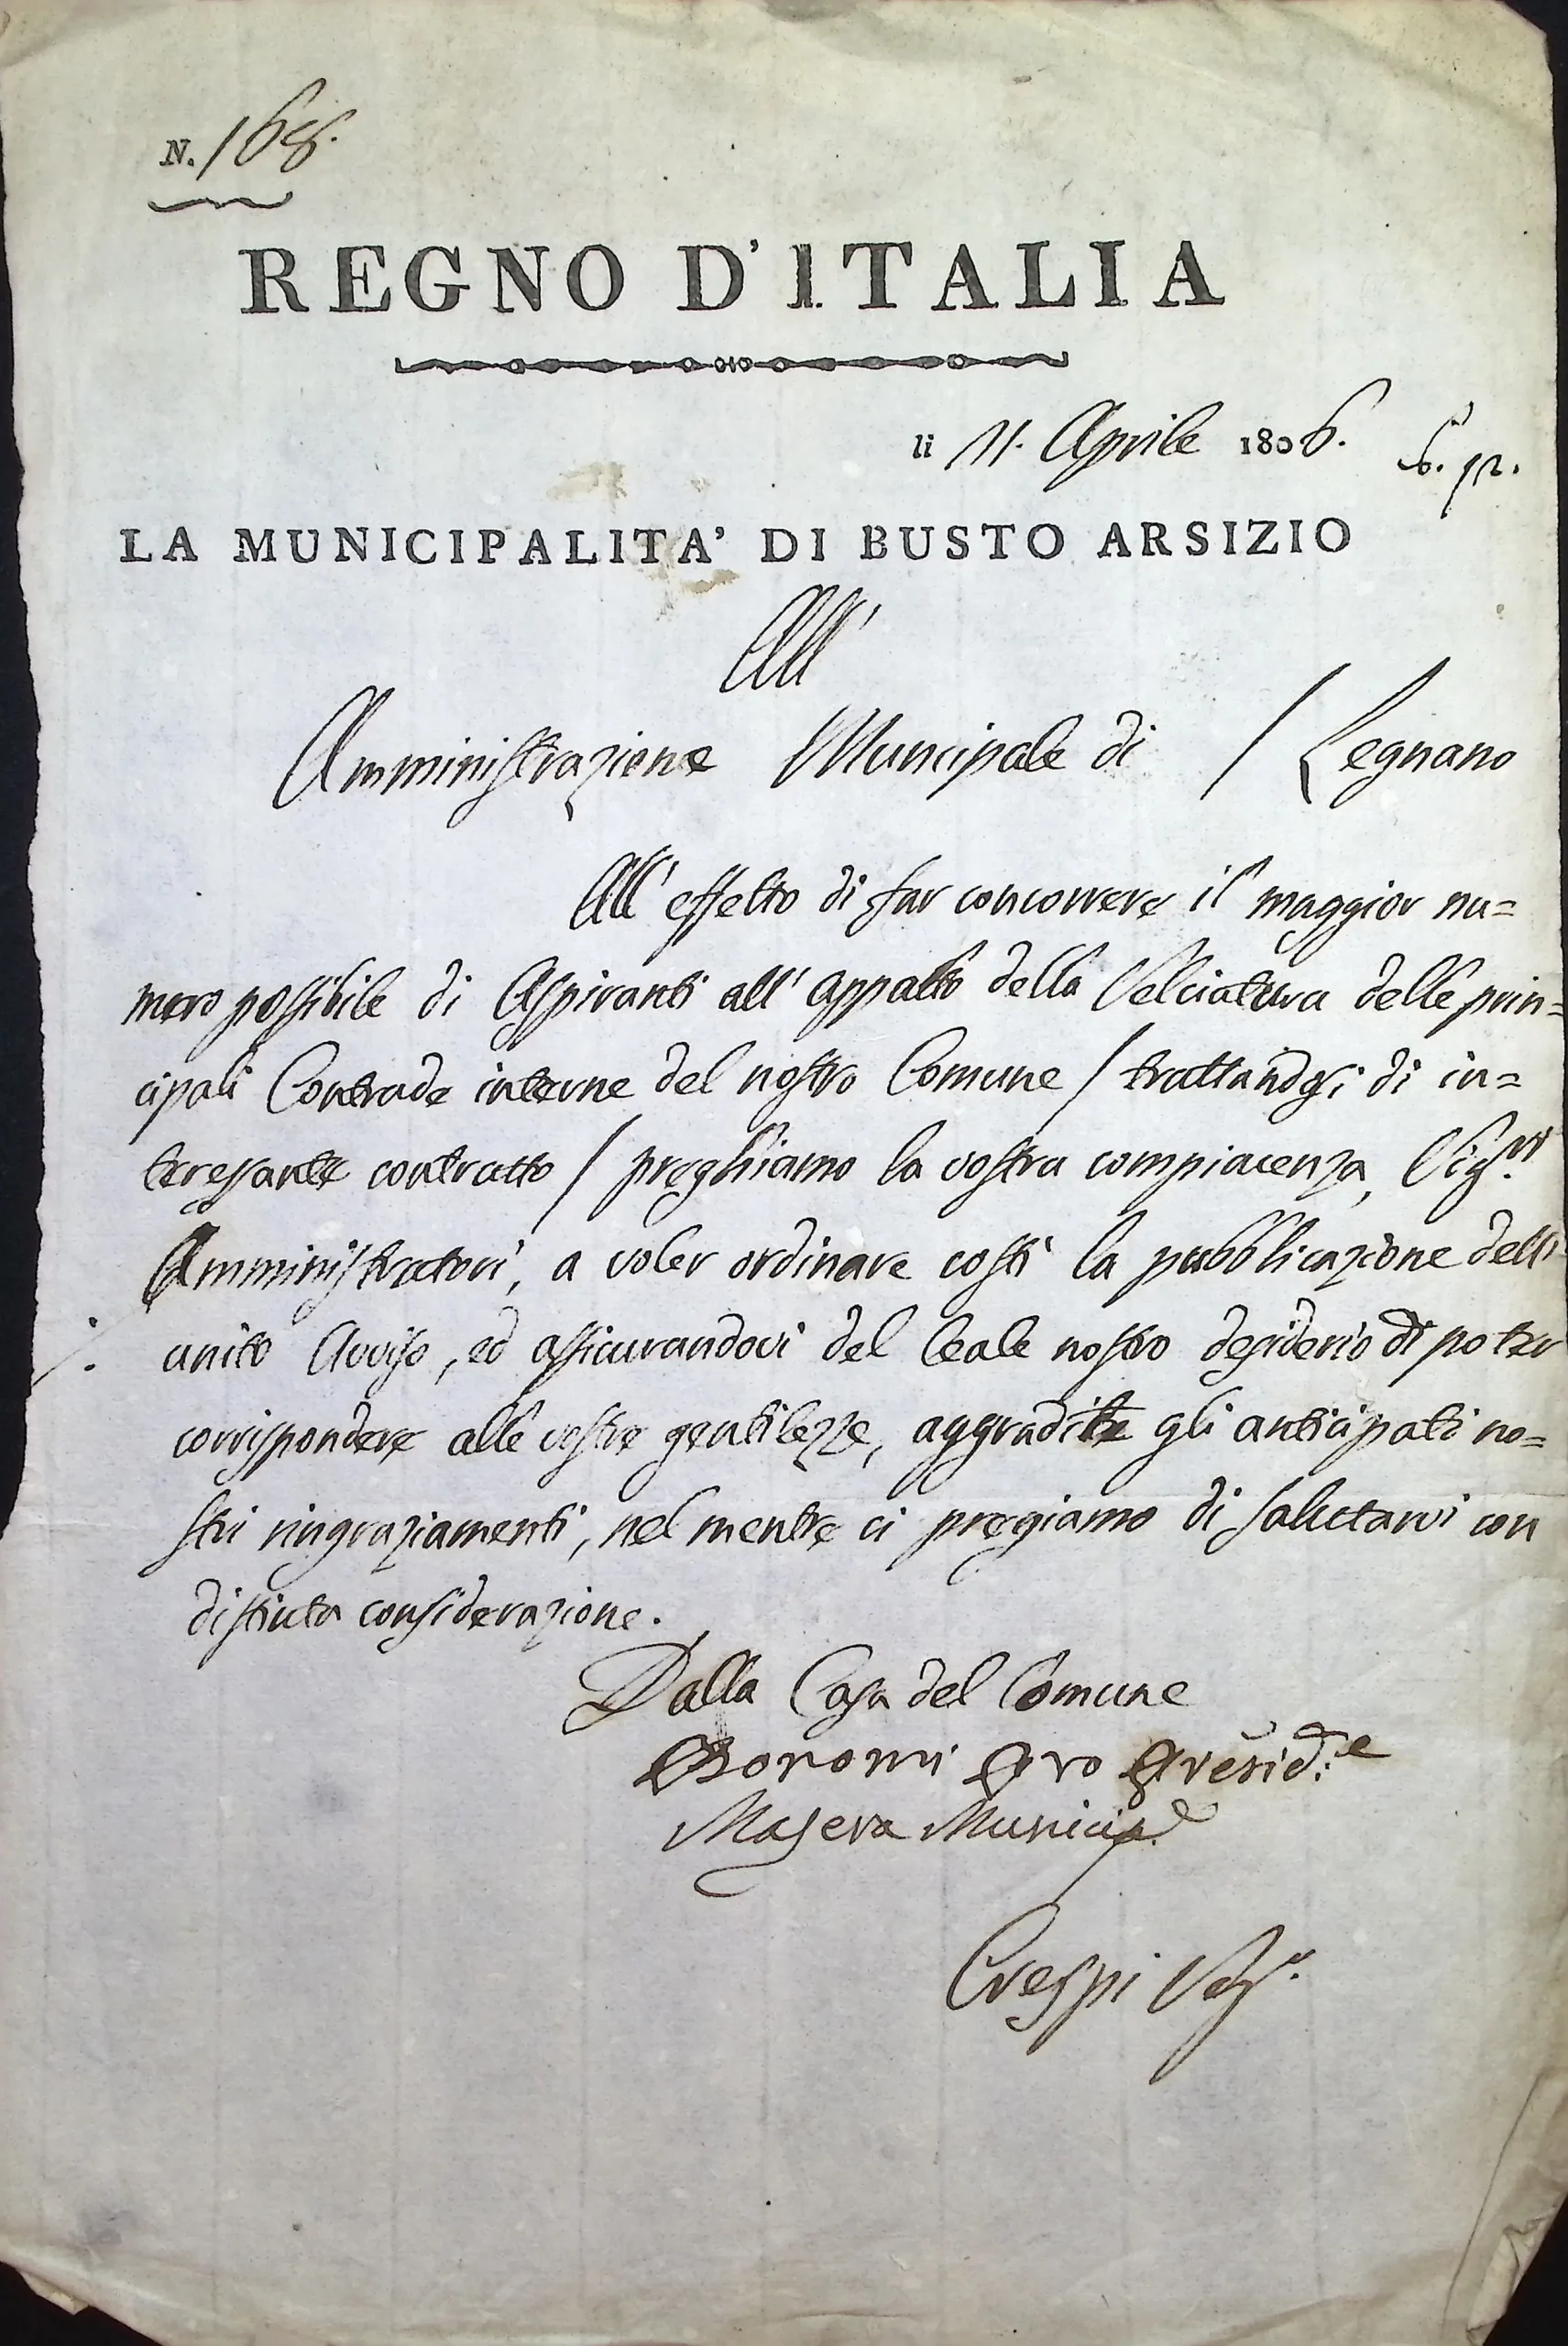 N. 168.
REGNO D'ITALIA
li 11. Aprile 1806.
LA MUNICIPALITA' DI BUSTO ARSIZIO
All'
Amministrazione Muncipale di / Legnano
All' effetto di far concorrere il maggior nu=
mero possibile di Aspiranti all' appalto della Selciatura delle prin=
cipali Contrade interne del nostro Comune / trattandosi di in=
teressante contratto / preghiamo la vostra compiacenza, Sig.ri
Amministratori, a voler ordinare costì la pubblicazione dell'
unito Avviso, ed assicurandovi del leale nostro desiderio di poter
corrispondere alle vostre gentilezze, aggradite gli anticipati no=
stri ringraziamenti, nel mentre ci pregiamo di salutarvi con
distinta considerazione.
Dalla Casa del Comune
Bonomi Pro Presid.e
Masera Municip.e
Crespi Seg.o